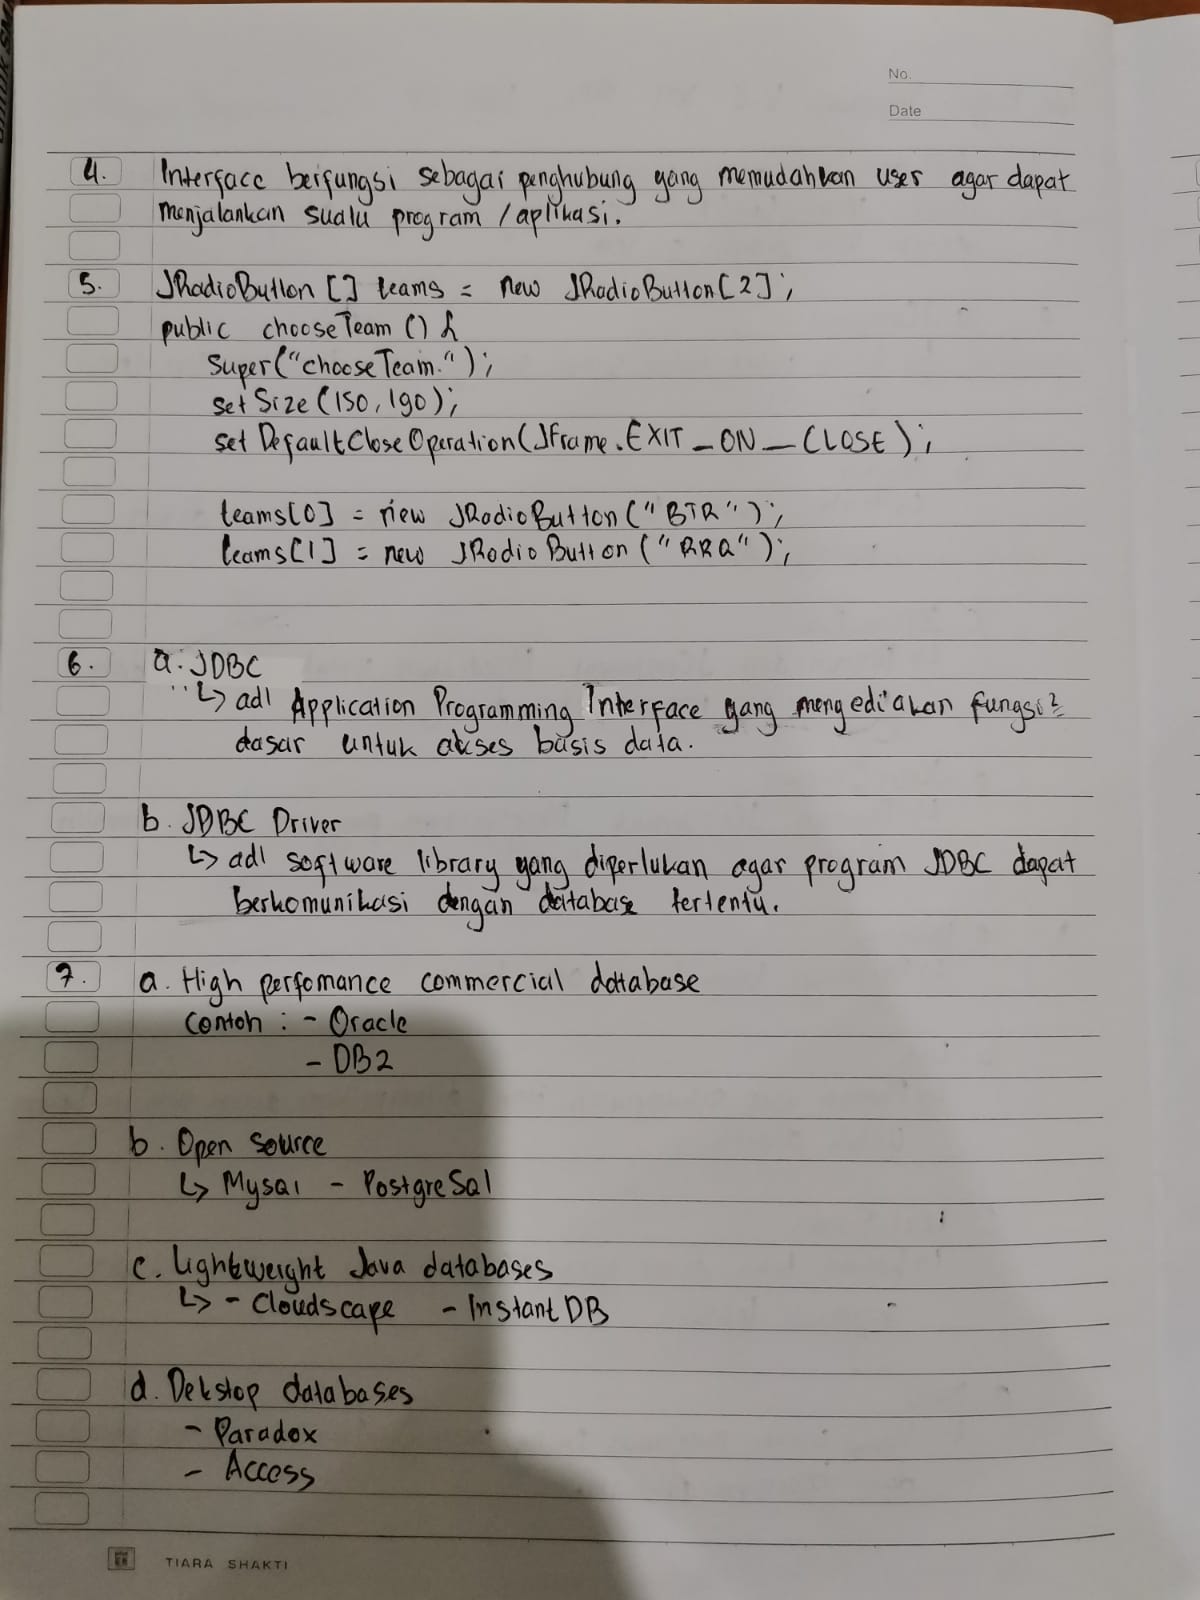 untuk SM
No.
Date
4. Interface berfungsi sebagai penghubung yang memudahkan user agar dapat
menjalankan suatu program / aplikasi.
5. JRadioButton [] teams = new JRadioButton [2];
public chooseTeam () {
Super("chooseTeam.");
set Size (150, 190);
set DefaultClose Operation (JFrame. EXIT _ ON _ CLOSE);
teams [0] = new JRadioButton ("BTR");
teams [1] = new JRadio Button ("RRQ");
6. a. JDBC
↳ adl Application Programming Interface yang mengediakan fungsi²
dasar untuk akses basis data.
b. JDBC Driver
↳ adl software library yang diperlukan agar program JDBC dapat
berkomunikasi dengan database tertentu.
7. a. High perfomance commercial database
Contoh : - Oracle
- DB2
b. Open source
↳ Mysql - PostgreSql
c. Lightweight Java databases
↳ - Cloudscape - Instant DB
d. Dekstop databases
- Paradox
- Access
TIARA SHAKTI